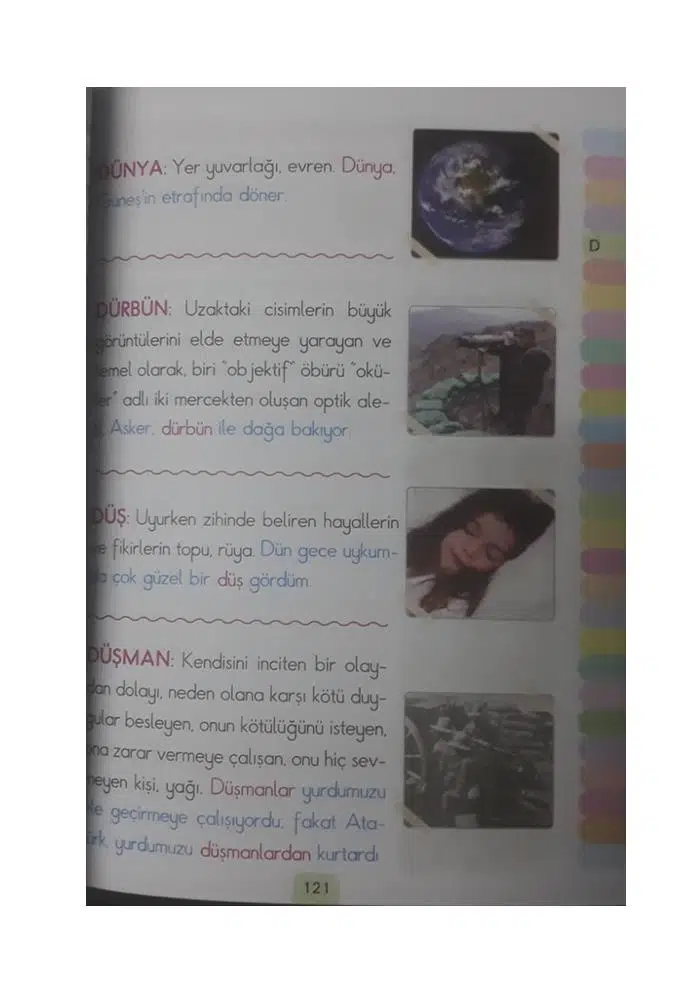 DÜNYA: Yer yuvarlağı, evren. Dünya,
Güneş'in etrafında döner.
D
DÜRBÜN: Uzaktaki cisimlerin büyük
görüntülerini elde etmeye yarayan ve
temel olarak, biri "objektif" öbürü "okü-
ler" adlı iki mercekten oluşan optik ale-
t. Asker, dürbün ile dağa bakıyor.
DÜŞ: Uyurken zihinde beliren hayallerin
ve fikirlerin topu, rüya. Dün gece uykum-
da çok güzel bir düş gördüm.
DÜŞMAN: Kendisini inciten bir olay-
dan dolayı, neden olana karşı kötü duy-
gular besleyen, onun kötülüğünü isteyen,
ona zarar vermeye çalışan, onu hiç sev-
meyen kişi, yağı. Düşmanlar yurdumuzu
ele geçirmeye çalışıyordu, fakat Ata-
türk, yurdumuzu düşmanlardan kurtardı.
121